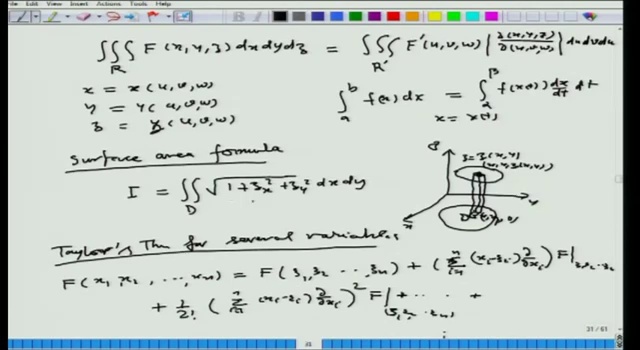 ∫∫∫_R F(x, y, z) dx dy dz = ∫∫∫_R' F'(u, v, w) |∂(x, y, z)/∂(u, v, w)| du dv dw
x = x(u, v, w)
y = y(u, v, w)
z = z(u, v, w)
∫_a^b f(x) dx = ∫_α^β f(x(t)) dx/dt dt
x = x(t)
Surface area formula
I = ∫∫_D √(1 + z_x² + z_y²) dx dy
z
z = z(x, y)
(x, y, z(x, y))
y
x
D (x, y, 0)
Taylor's Thm for several variables
F(x₁, x₂, ..., xₙ) = F(ξ₁, ξ₂, ..., ξₙ) + (Σ_{i=1}^n (xᵢ-ξᵢ) ∂/∂xᵢ) F|_{ξ₁, ξ₂ ... ξₙ}
+ 1/2! (Σ_{i=1}^n (xᵢ-ξᵢ) ∂/∂xᵢ)² F|_{(ξ₁, ξ₂, ... ξₙ)} + ... +
31 / 61
31